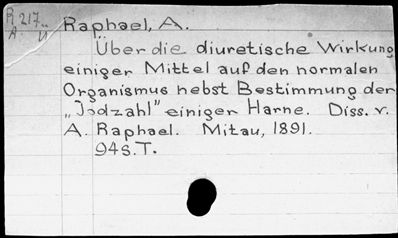 R 217
Raphael, A.
Über die diuretische Wirkung
einiger Mittel auf den normalen
Organismus nebst Bestimmung der
„Jodzahl" einiger Harne. Diss. v.
A. Raphael. Mitau, 1891.
94 S. T.